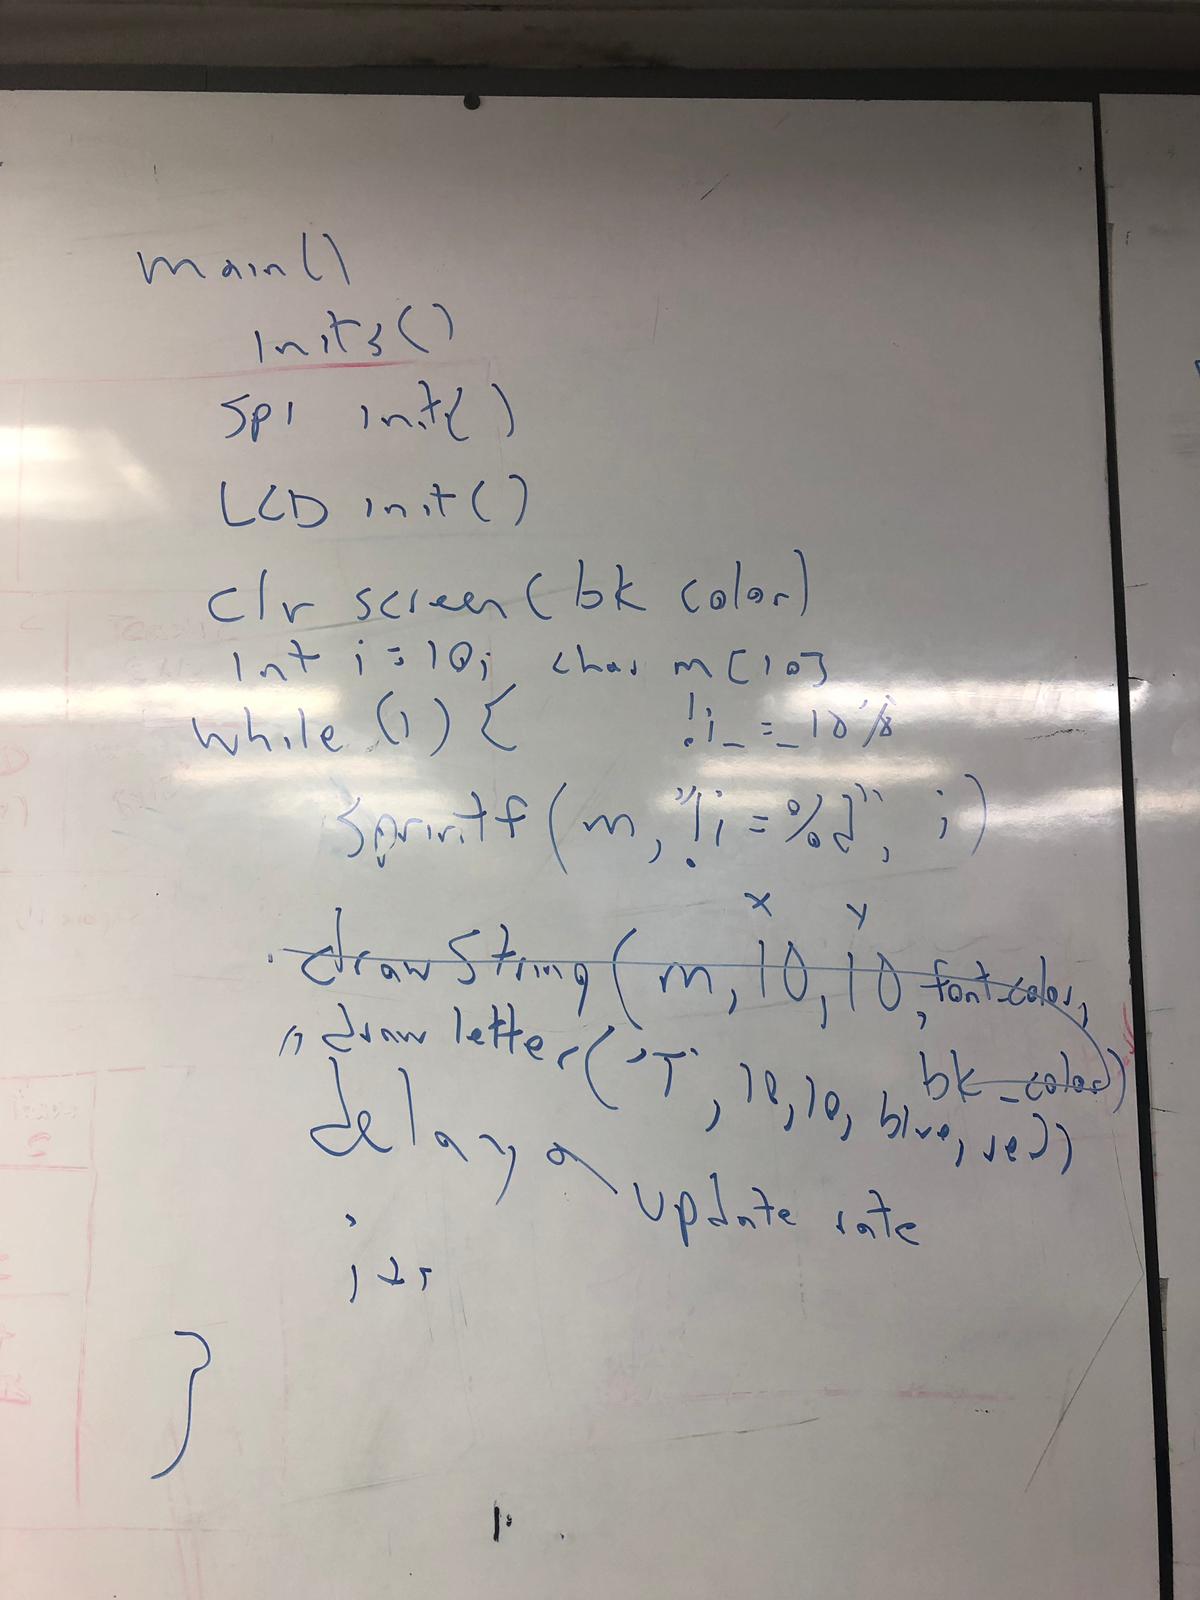 main()
inits()
SPI init()
LCD init()
clr screen(bk color)
int i=10; char m[10]
while (1) {
!i_=_10
sprintf(m, "!i=%d", i)
x y
drawString(m, 10, 10, font_color,
bk_color)
draw letter('T', 10, 10, blue, red)
delay
update rate
i++
}